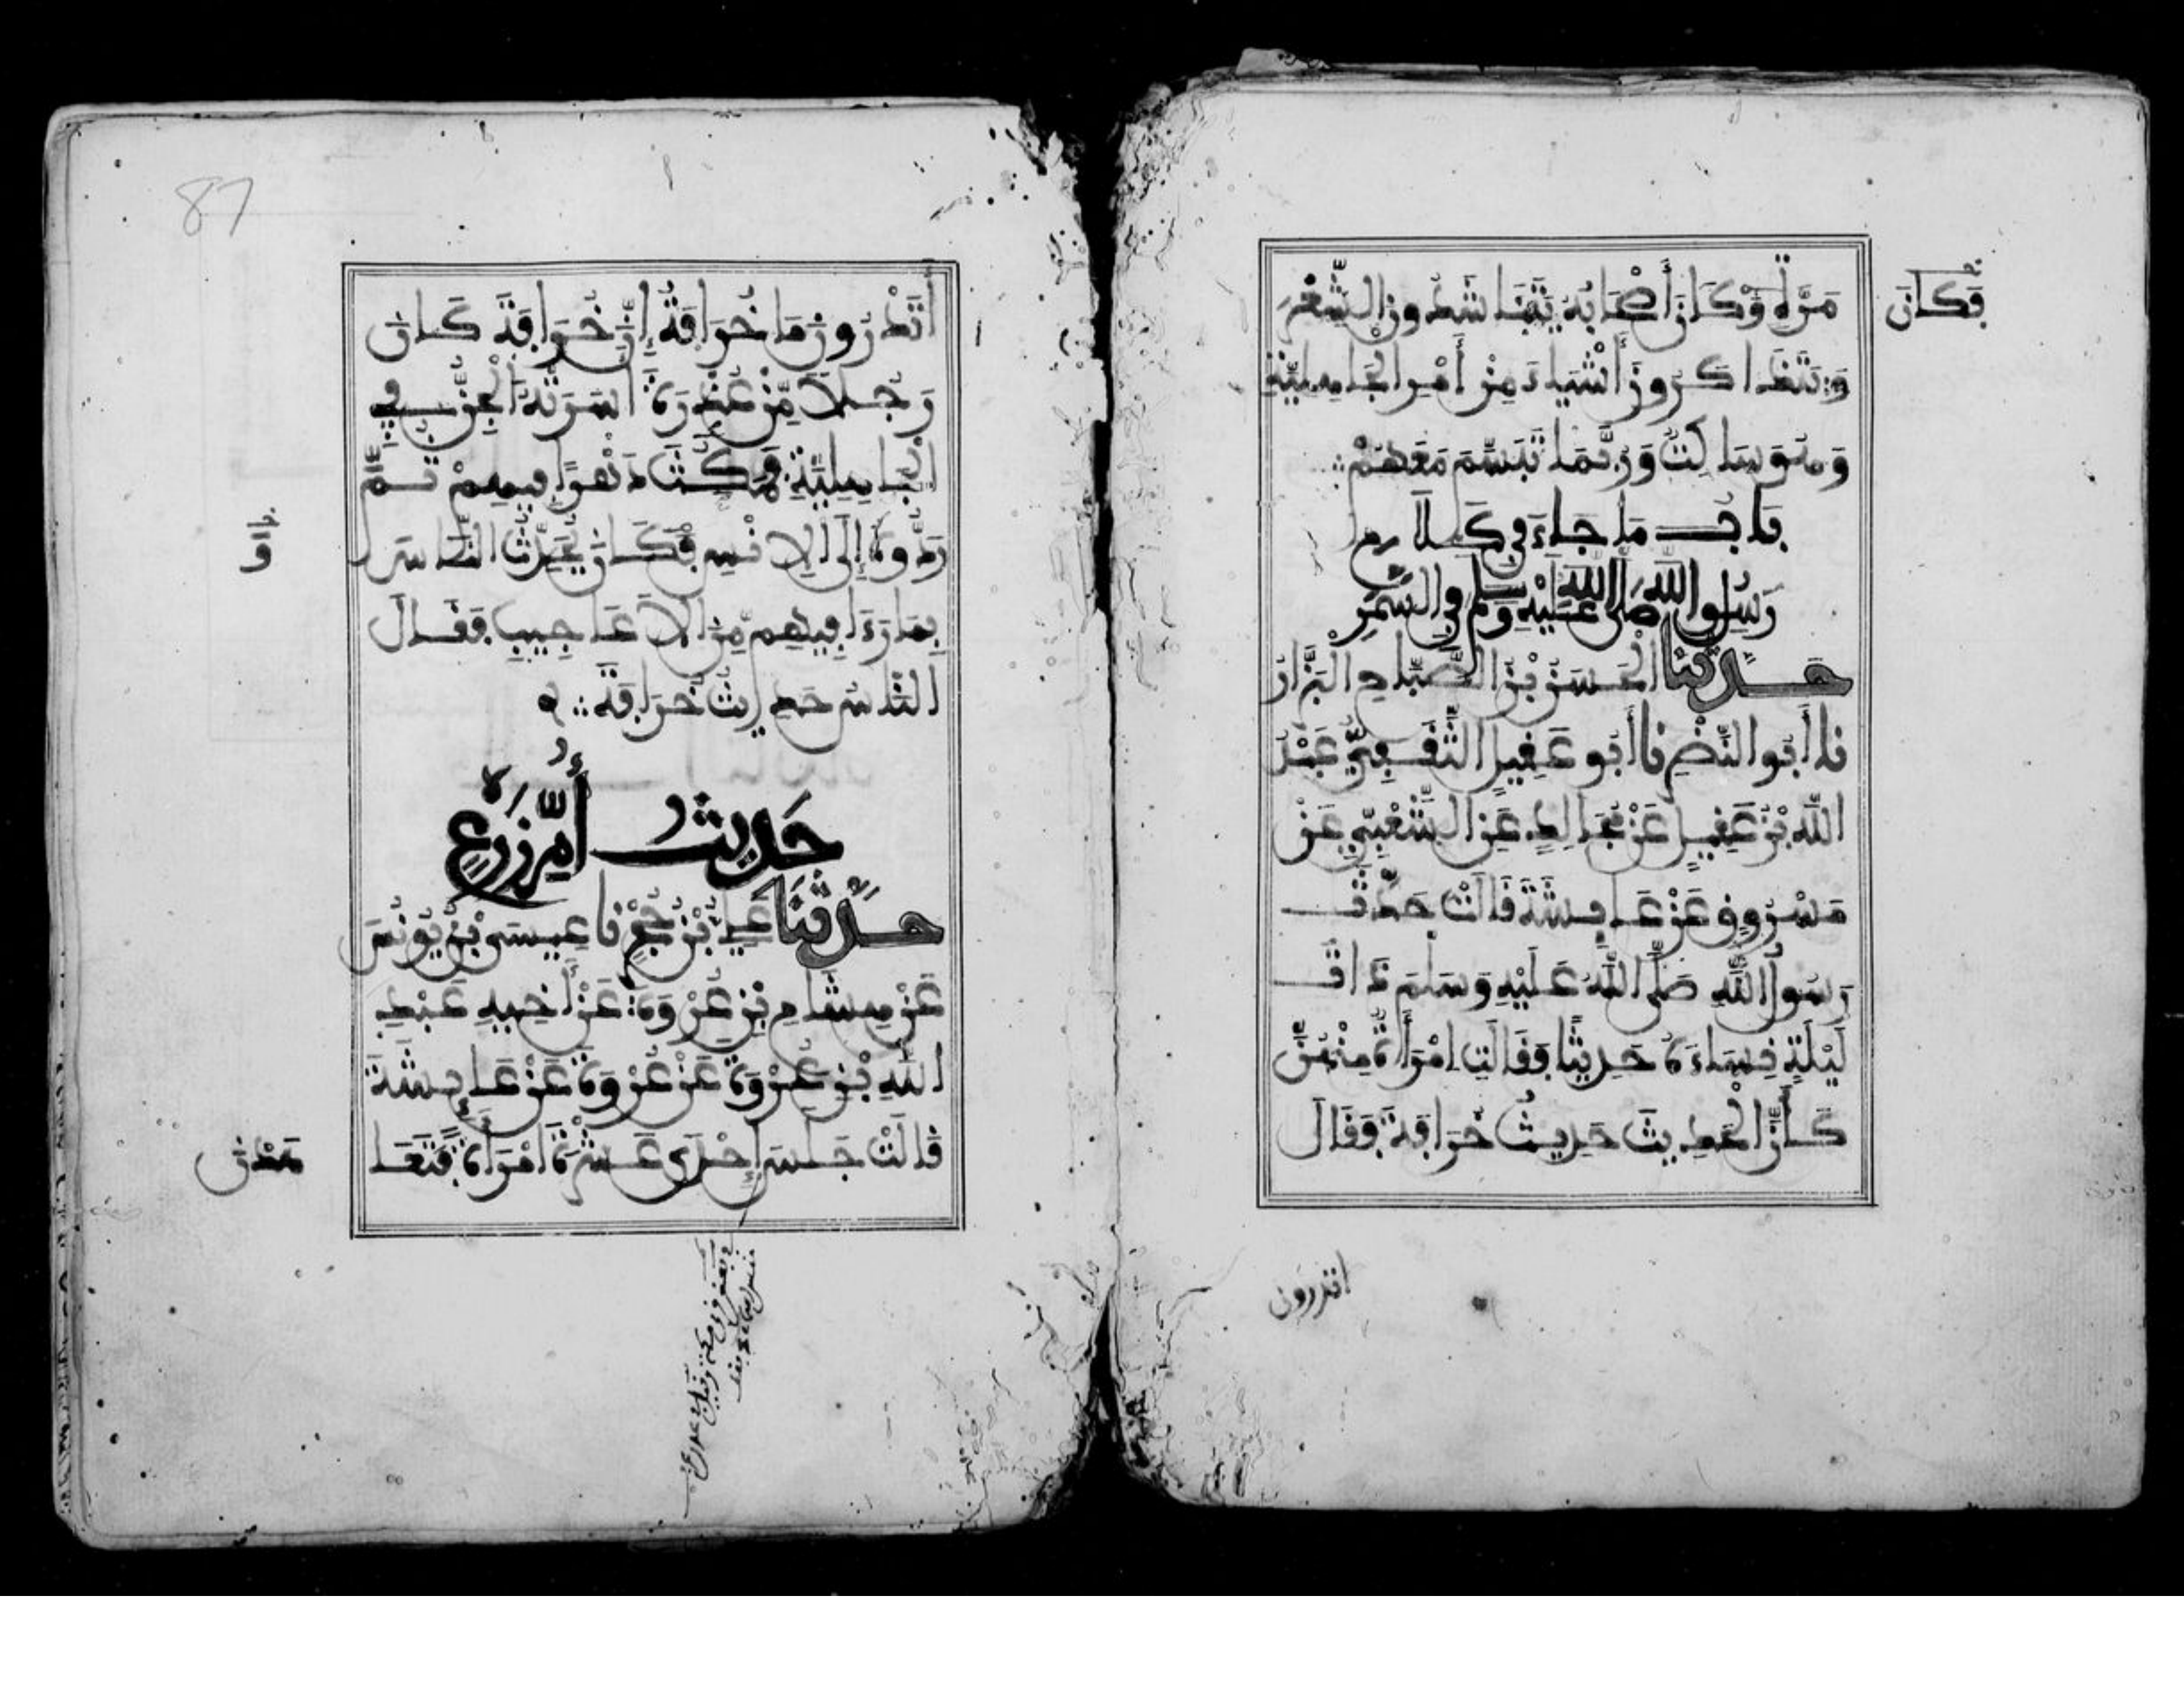 مَرَّةٍ وَكَانَ أَصْحَابُهُ يَتَنَاشَدُونَ الشِّعْرَ
فَكَانَ
وَيَتَذَاكَرُونَ أَشْيَاءَ مِنْ أَمْرِ الْجَاهِلِيَّةِ
وَهُوَ سَاكِتٌ وَرُبَّمَا تَبَسَّمَ مَعَهُمْ
بَابُ مَا جَاءَ فِي كَلَامِ
رَسُولِ اللَّهِ صَلَّى اللَّهُ عَلَيْهِ وَسَلَّمَ فِي السَّمَرِ
حَدَّثَنَا الْحَسَنُ بْنُ الصَّبَّاحِ الْبَزَّارُ
نَا أَبُو النَّضْرِ نَا أَبُو عَقِيلٍ الثَّقَفِيُّ عَبْدُ
اللَّهِ بْنُ عَقِيلٍ عَنْ مُجَالِدٍ عَنِ الشَّعْبِيِّ عَنْ
مَسْرُوقٍ عَنْ عَائِشَةَ قَالَتْ حَدَّثَ
رَسُولُ اللَّهِ صَلَّى اللَّهُ عَلَيْهِ وَسَلَّمَ ذَاتَ
لَيْلَةٍ نِسَاءَهُ حَدِيثًا فَقَالَتِ امْرَأَةٌ مِنْهُنَّ
كَأَنَّ الْحَدِيثَ حَدِيثُ خُرَافَةَ فَقَالَ
اتدرون
87
أَتَدْرُونَ مَا خُرَافَةُ إِنَّ خُرَافَةَ كَانَ
رَجُلًا مِّنْ عُذْرَةَ أَسَرَتْهُ الْجِنُّ فِي
الْجَاهِلِيَّةِ فَمَكَثَ دَهْرًا فِيهِمْ ثُمَّ
رَدُّوهُ إِلَى الْإِنْسِ فَكَانَ يُحَدِّثُ النَّاسَ
وَ
بِمَا رَءَا فِيهِمْ مِنَ الْأَعَاجِيبِ فَقَالَ
النَّاسُ حَدِيثُ خُرَافَةَ
حَدِيثُ أُمِّ زَرْعٍ
حَدَّثَنَا عَلِيُّ بْنُ حُجْرٍ نَا عِيسَى بْنُ يُونُسَ
عَنْ هِشَامِ بْنِ عُرْوَةَ عَنْ أَخِيهِ عَبْدِ
اللَّهِ بْنِ عُرْوَةَ عَنْ عُرْوَةَ عَنْ عَائِشَةَ
قَالَتْ جَلَسَ إِحْدَى عَشْرَةَ امْرَأَةً فَتَعَا
هَدْنَ